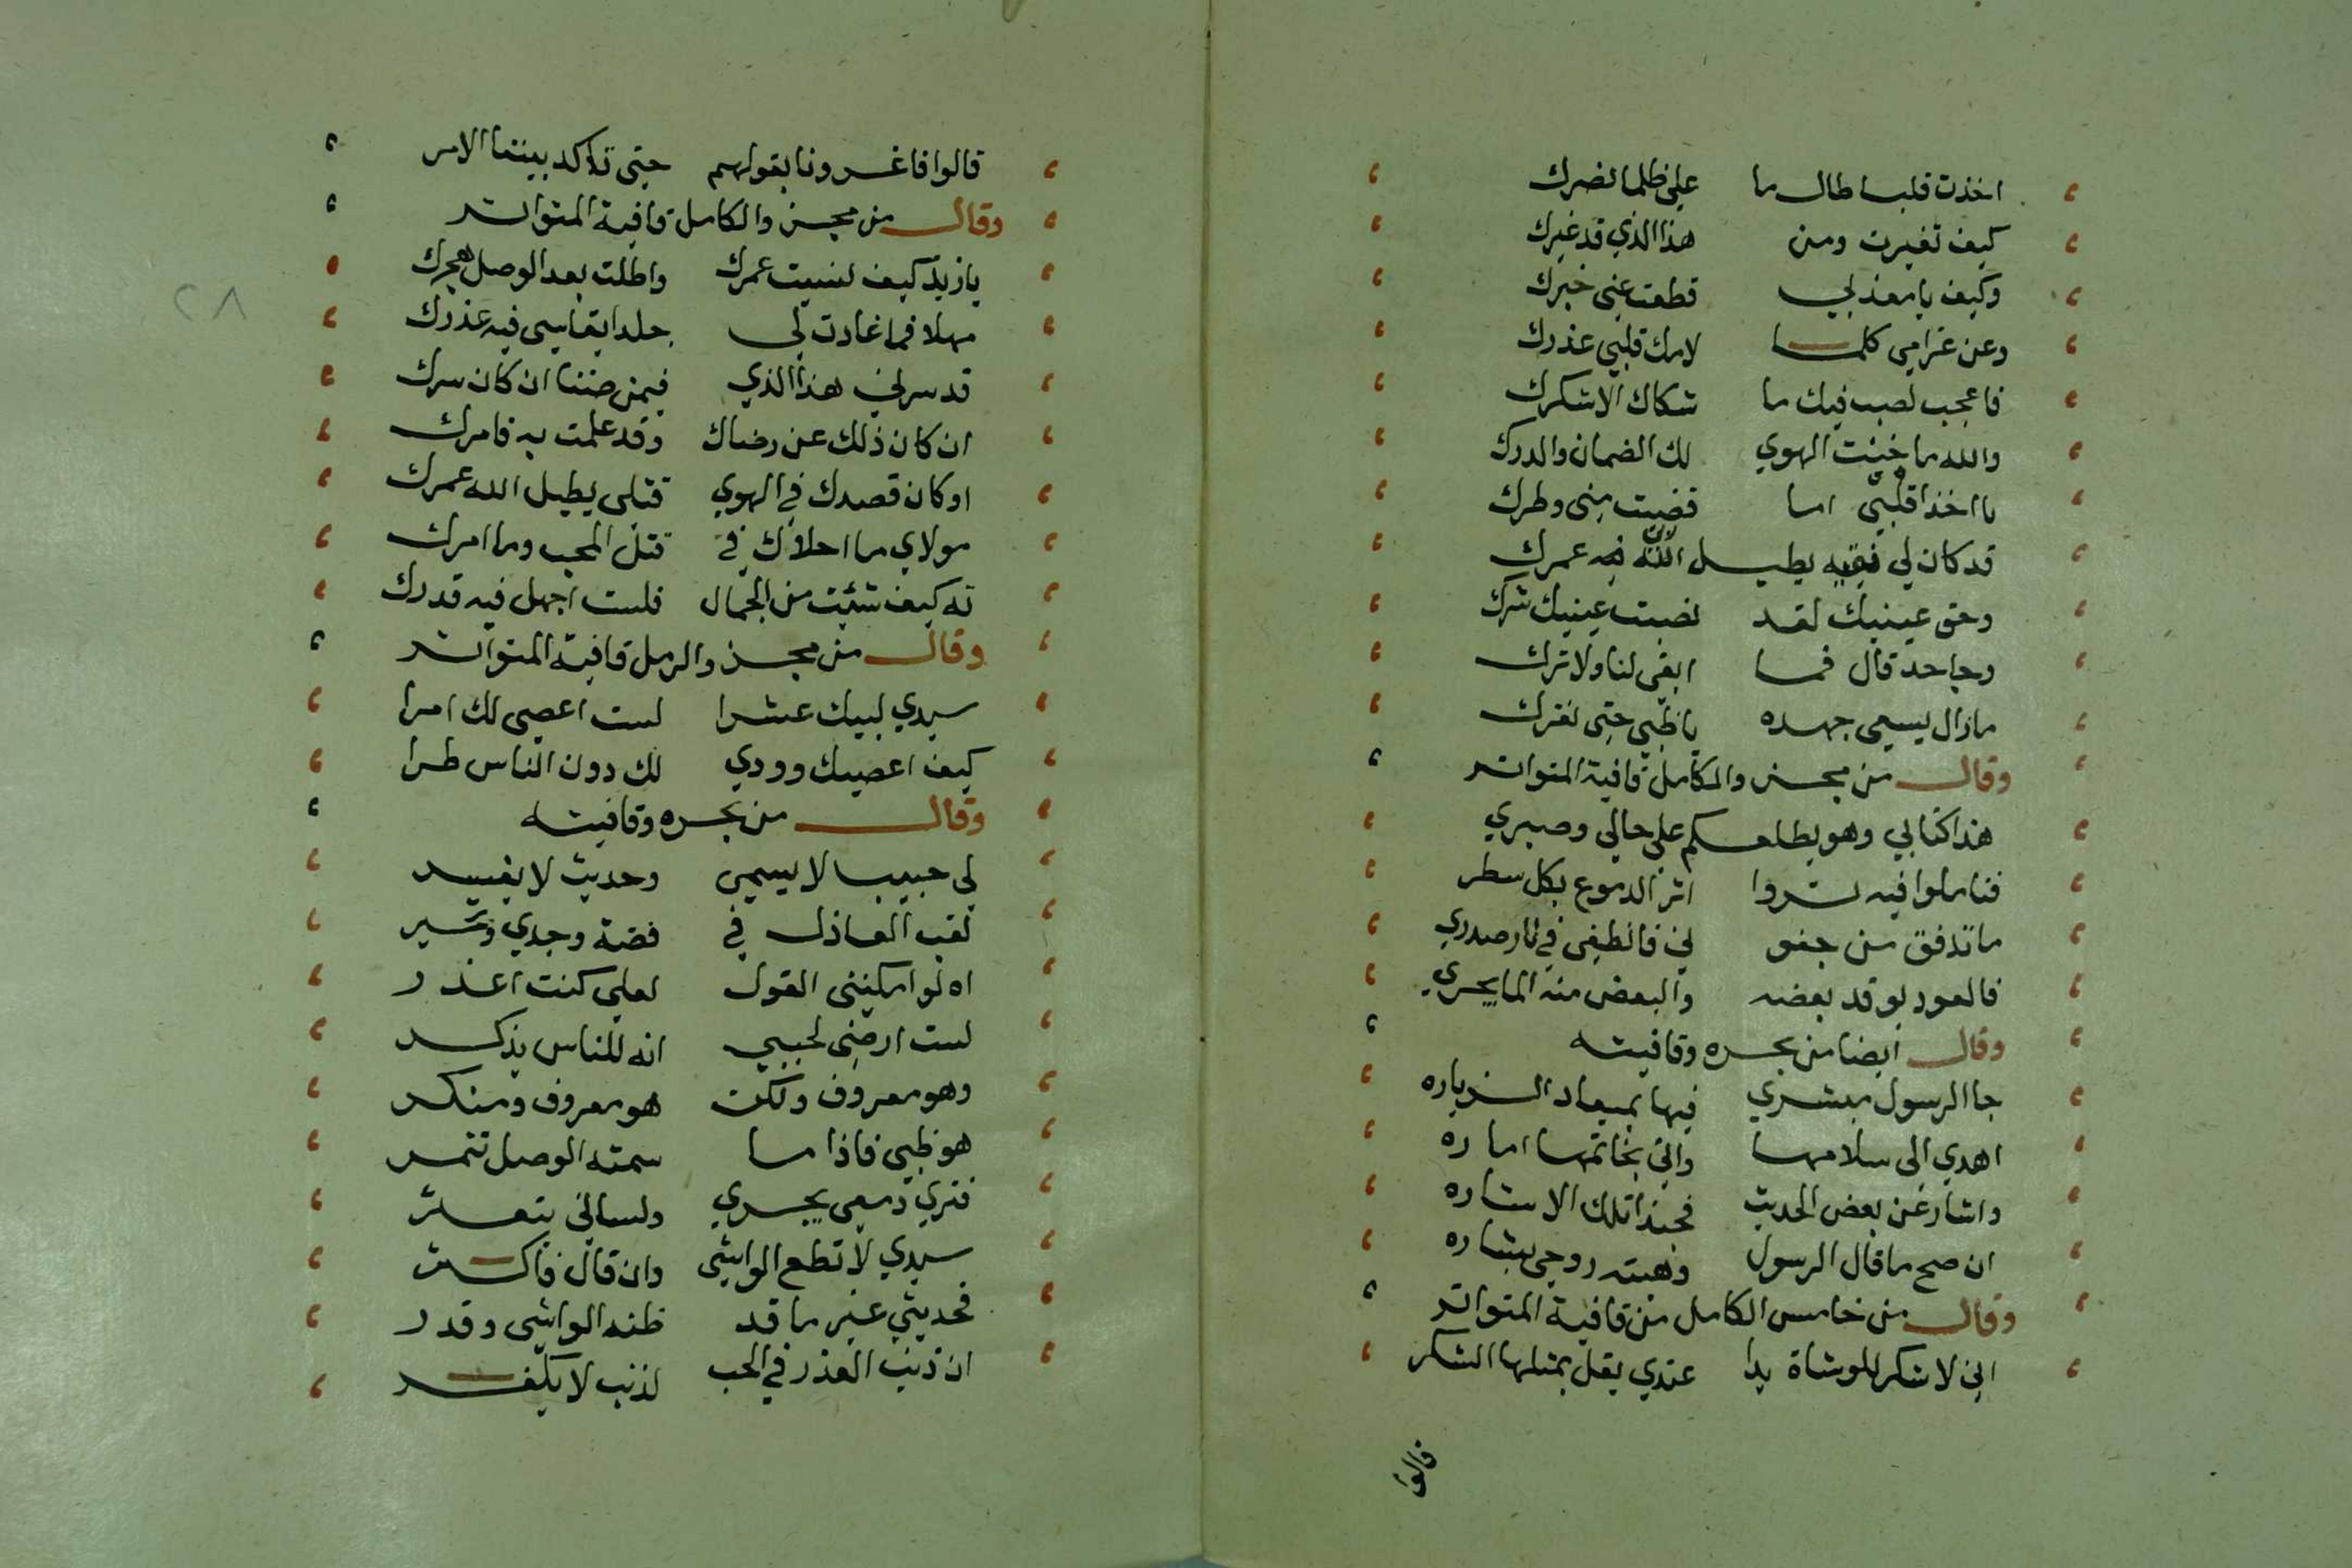 اخذت قلبا طال ما علي ظلما نصرك
كيف تغيرت ومن هذا الذي قد غيرك
وكيف يا معذبي قطعت عني خبرك
وعن غرامي كلما لامك قلبي عذرك
فاعجب لصب فيك ما شكاك الا شكرك
والله ما خنت الهوي لك الضمان والدرك
يا اخذا قلبي اما قضيت مني وطرك
قد كان لي فيه يطيل الله فيه عمرك
وحق عينيك لقد نصبت عينيك شرك
وجاحد قال فما ابقي لنا ولا ترك
مازال يسعي جهده يا ظبي حتي نفرك
وقال من مجزو الكامل قافية المتواتر
هذا كتابي وهو يطلعكم علي حالي وصبري
فتاملوا فيه تروا اثر الدموع بكل سطر
ما تدفق من جفو ني فانطفي في نار صدري
فالعود يوقد بعضه والبعض منه الما يجري
وقال ايضا من بحره وقافيته
جا الرسول مبشري فيها بميعاد الزياره
اهدي الى سلامها واتي بخاتمها اماره
واشار عن بعض الحديث فحبذا تلك الاشاره
ان صح ما قال الرسول وهبته روحي بشاره
وقال من خامس الكامل من قافية المتواتر
اني لاشكر للوشاة يدا عندي يقل بمثلها الشكر
قالوا
قالوا فاغرونا بقولهم حتي تاكد بيننا الامر
وقال من مجزو الكامل قافية المتواتر
يا زيد كيف نسيت عمرك واطلت بعد الوصل هجرك
مهلا فما غادرت لي جلدا يقاسي فيه غدرك
قد سرني هذا الذي فيمن ضننا ان كان سرك
ان كان ذلك عن رضاك وقد علمت به فامرك
او كان قصدك في الهوي قتلي يطيل الله عمرك
مولاي ما احلاك في قتل المحب وما امرك
ته كيف شئت من الجمال فلست اجهل فيه قدرك
وقال من مجزو الرمل قافية المتواتر
سيدي لبيك عشرا لست اعصي لك امرا
كيف اعصيك وودي لك دون الناس طرا
وقال من بحره وقافيته
لي حبيب لا يسمي وحديث لا يفسر
تعب العاذل في قصة وجدي وتحير
اه لو امكنني القول لعلي كنت اعذر
لست ارضي لحبيبي انه للناس يذكر
وهو معروف ولكن هو معروف ومنكر
هو ظبي فاذا ما سمته الوصل تنمر
فتري دمعي يجري ولساني يتعثر
سيدي لا تطع الواشي وان قال فاكثر
فحديثي غير ما قد ظنه الواشي وقدر
ان ذنب الغدر في الحب لذنب لا يكفر
٢٨